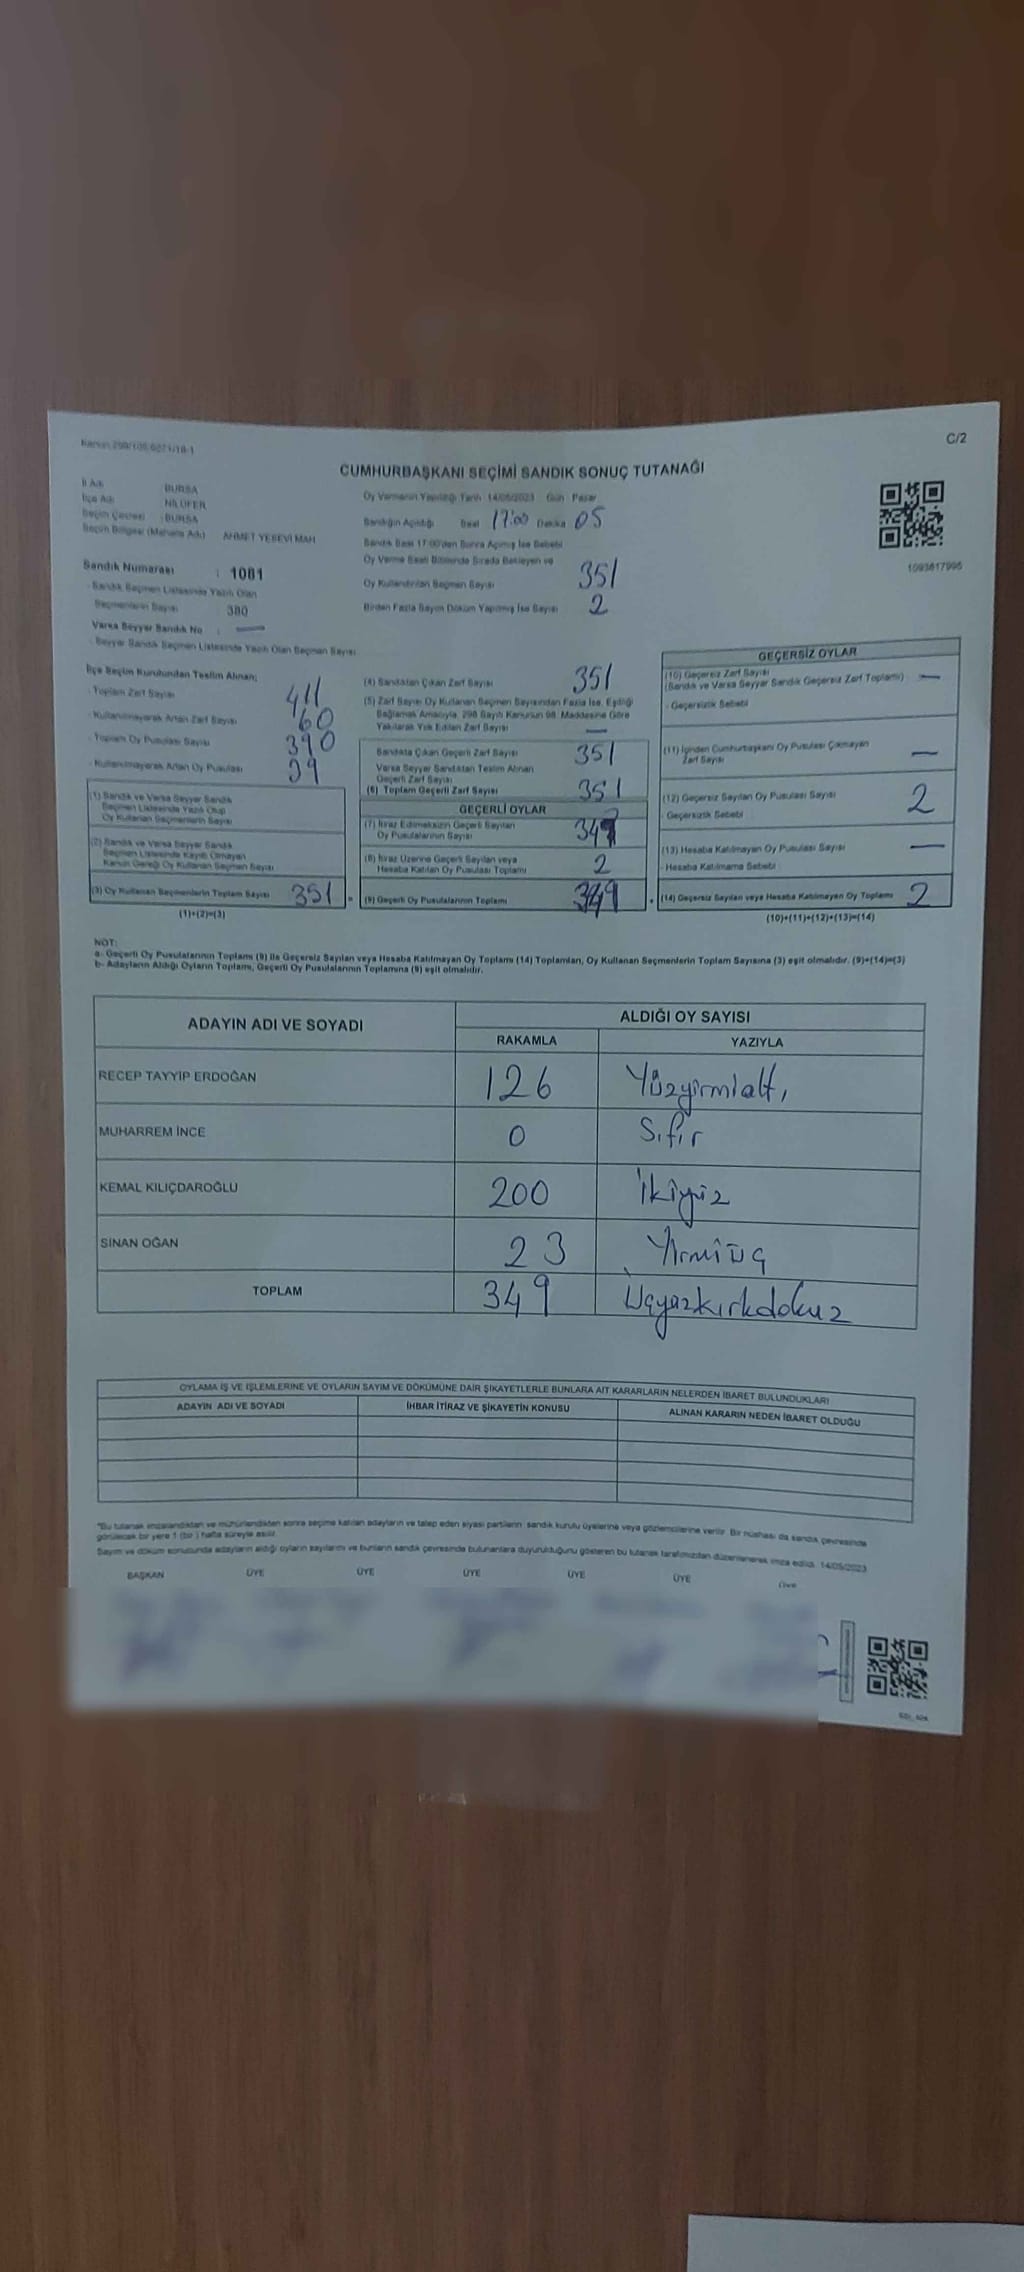 C/2
CUMHURBAŞKANI SEÇİMİ SANDIK SONUÇ TUTANAĞI
İl Adı : BURSA
İlçe Adı : NİLÜFER
Seçim Çevresi : BURSA
Seçim Bölgesi (Mahalle Adı) AHMET YESEVİ MAH
Sandık Numarası : 1081
Sandık Seçmen Listesinde Yazılı Olan
Seçmenlerin Sayısı 380
Varsa Seyyar Sandık No : —
Seyyar Sandık Seçmen Listesinde Yazılı Olan Seçmen Sayısı
Oy Vermenin Yapıldığı Tarih 14/05/2023 Gün Pazar
Sandığın Açıldığı Saat 17:00 Dakika 05
Sandık Saat 17:00'den Sonra Açılmış İse Sebebi
Oy Verme Saati Bitiminde Sırada Bekleyen ve
Oy Kullandırılan Seçmen Sayısı 351
Birden Fazla Sayım Döküm Yapılmış İse Sayısı 2
1093817995
İlçe Seçim Kurulundan Teslim Alınan;
- Toplam Zarf Sayısı 411
- Kullanılmayarak Artan Zarf Sayısı 60
- Toplam Oy Pusulası Sayısı 390
- Kullanılmayarak Artan Oy Pusulası 39
(1) Sandık ve Varsa Seyyar Sandık
Seçmen Listesinde Yazılı Olup
Oy Kullanan Seçmenlerin Sayısı
(2) Sandık ve Varsa Seyyar Sandık
Seçmen Listesinde Kayıtlı Olmayan
Kanun Gereği Oy Kullanan Seçmen Sayısı
(3) Oy Kullanan Seçmenlerin Toplam Sayısı 351 =
(1)+(2)=(3)
(4) Sandıktan Çıkan Zarf Sayısı 351
(5) Zarf Sayısı Oy Kullanan Seçmen Sayısından Fazla İse, Eşitliği
Sağlamak Amacıyla, 298 Sayılı Kanunun 98. Maddesine Göre
Yakılarak Yok Edilen Zarf Sayısı —
Sandıkta Çıkan Geçerli Zarf Sayısı 351
Varsa Seyyar Sandıktan Teslim Alınan
Geçerli Zarf Sayısı
(6) Toplam Geçerli Zarf Sayısı 351
GEÇERLİ OYLAR
(7) İtiraz Edilmeksizin Geçerli Sayılan
Oy Pusulalarının Sayısı 347
(8) İtiraz Üzerine Geçerli Sayılan veya
Hesaba Katılan Oy Pusulası Toplamı 2
(9) Geçerli Oy Pusulalarının Toplamı 349 +
GEÇERSİZ OYLAR
(10) Geçersiz Zarf Sayısı
(Sandık ve Varsa Seyyar Sandık Geçersiz Zarf Toplamı) —
- Geçersizlik Sebebi
(11) İçinden Cumhurbaşkanı Oy Pusulası Çıkmayan
Zarf Sayısı —
(12) Geçersiz Sayılan Oy Pusulası Sayısı 2
- Geçersizlik Sebebi
(13) Hesaba Katılmayan Oy Pusulası Sayısı —
- Hesaba Katılmama Sebebi
(14) Geçersiz Sayılan veya Hesaba Katılmayan Oy Toplamı 2
(10)+(11)+(12)+(13)=(14)
NOT:
a- Geçerli Oy Pusulalarının Toplamı (9) ile Geçersiz Sayılan veya Hesaba Katılmayan Oy Toplamı (14) Toplamları, Oy Kullanan Seçmenlerin Toplam Sayısına (3) eşit olmalıdır. (9)+(14)=(3)
b- Adayların Aldığı Oyların Toplamı, Geçerli Oy Pusulalarının Toplamına (9) eşit olmalıdır.
ADAYIN ADI VE SOYADI ALDIĞI OY SAYISI
RAKAMLA YAZIYLA
RECEP TAYYİP ERDOĞAN 126 Yüzyirmialtı
MUHARREM İNCE 0 Sıfır
KEMAL KILIÇDAROĞLU 200 İkiyüz
SİNAN OĞAN 23 Yirmiüç
TOPLAM 349 Üçyüzkırkdokuz
OYLAMA İŞ VE İŞLEMLERİNE VE OYLARIN SAYIM VE DÖKÜMÜNE DAİR ŞİKAYETLERLE BUNLARA AİT KARARLARIN NELERDEN İBARET BULUNDUKLARI
ADAYIN ADI VE SOYADI İHBAR İTİRAZ VE ŞİKAYETİN KONUSU ALINAN KARARIN NEDEN İBARET OLDUĞU
*Bu tutanak imzalandıktan ve mühürlendikten sonra seçime katılan adayların ve talep eden siyasi partilerin sandık kurulu üyelerine veya gözlemcilerine verilir. Bir nüshası da sandık çevresinde
görülecek bir yere 1 (bir) hafta süreyle asılır.
Sayım ve döküm sonucunda adayların aldığı oyların sayılarını ve bunların sandık çevresinde bulunanlara duyurulduğunu gösteren bu tutanak tarafımızdan düzenlenerek imza edildi. 14/05/2023
BAŞKAN ÜYE ÜYE ÜYE ÜYE ÜYE Üye